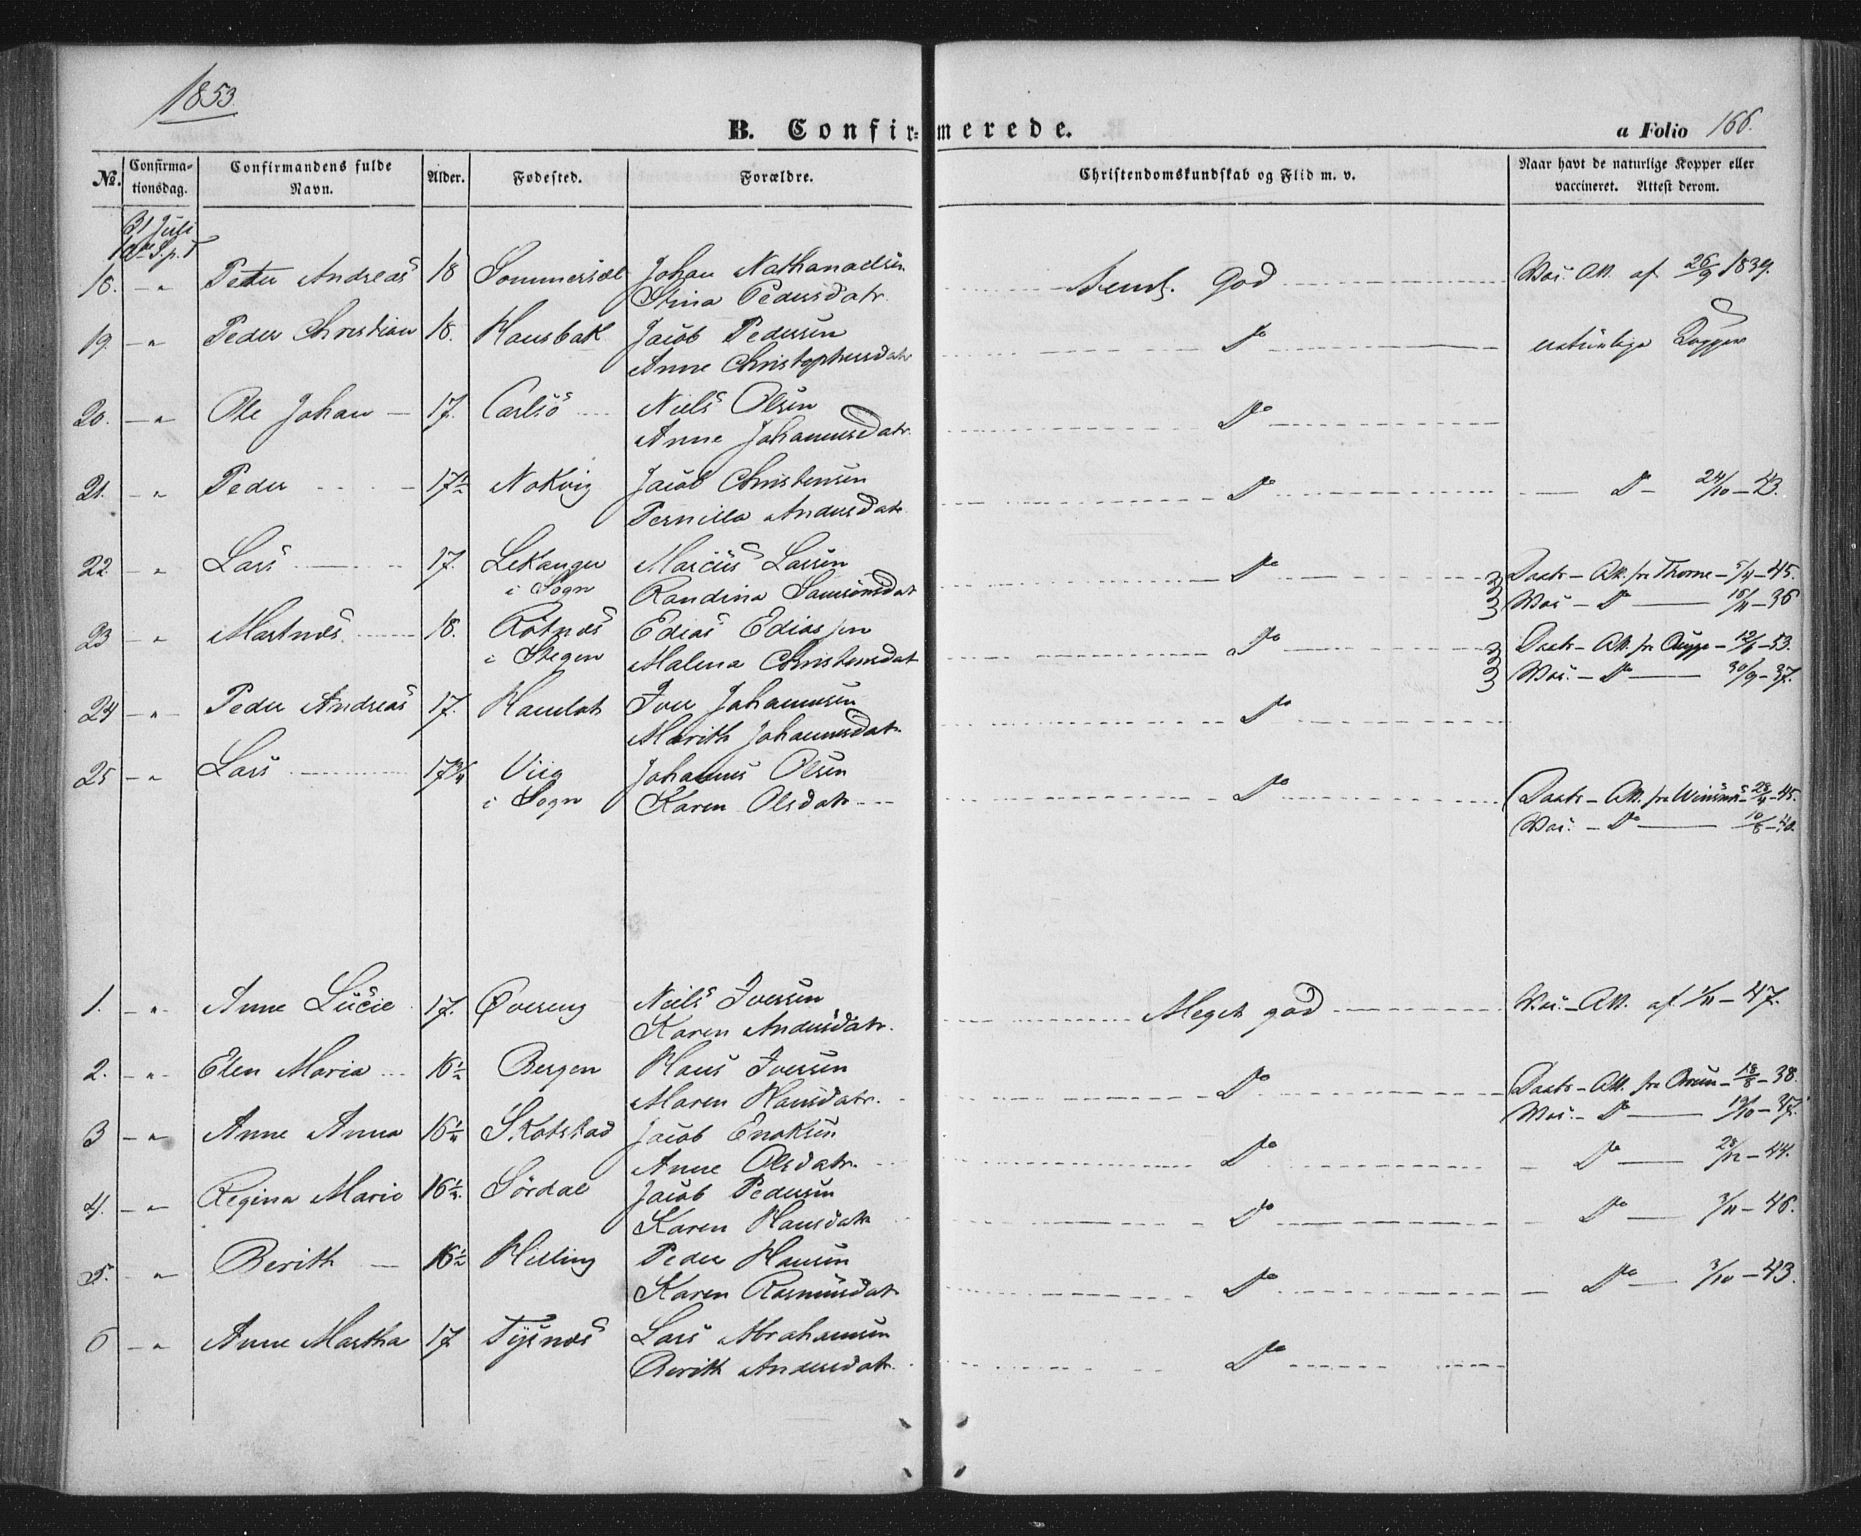 1853
B. Confirmerede.
a Folio 166.
No.
Confirmationsdag.
Confirmandens fulde Navn.
Alder.
Fødested.
Forældre.
Christendomskundskab og Flid m. v.
Naar havt de naturlige Kopper eller vaccineret. Attest derom.
31 Juli
10de S. p. T
18. - " Peder Andreas 18 Sommersæl Johan Nathanaelsen
Stina Pedersdatr god Vac. Att. af 26/9 1839.
19. - " Peder Christian 18. Hansbak Jacob Pedersen
Anne Christophersdatr Do naturlige Kopper
20. - " Ole Johan - 17. Carlsö Niels Olsen
Anne Johannesdatr. Do
21. - " Peder 17½ Nokvig Jacob Christensen
Pernilla Andersdatr Do - Do - 24/10 - 43.
22. - " Lars 17. Lekanger Marcus Larsen
i Sogn Randina Samsonsdatr Do Daabs - Att. fra Thorne - 5/4 - 45.
Vac - Do - 15/11 - 36
23 - " Martnæs 18. Rötnæs Edias Ediassen
i Stegen Malena Christensdat Do Daabs - Att. fr - 12/6 - 53.
Vac. - Do - 30/9 - 37.
24 - " Peder Andreas 17. Hamlot Iver Johannesen
Marith Johannesdatr. Do
25 - " Lars 17¾ Viig Johannes Olsen
i Sogn Karen Olsdatr Do Daabs - Att. fra - 28/4 - 45.
Vac. - Do - 10/8 - 40.
1. - " Anne Lucie 17. Øvereng Niels Iversen
Karen Andersdatr. Meget god Vac. - Att. af 1/11 - 47.
2. - " Elen Maria 16½ Bergen Hans Iversen
Maren Hansdatr. Do Daabs - Att. fra Bruun - 18/8 - 38.
Vac. - Do - 19/10 - 37.
3 - " Anne Anna 16¼ Skotstad Jacob Enoksen
Anne Olsdatr. Do - Do - 28/12 - 44.
4. - " Regina Marie 16½. Sördal Jacob Pedersen
Karen Hansdatr Do Do - 3/11 - 46.
5. - " Berith - 16½ Helling Peder Hansen
Karen Rasmusdatr Do - Do - 3/10 - 43.
6 - " Anne Martha 17 Tysnæs Lars Abrahamsen
Berith Andersdatr. Do